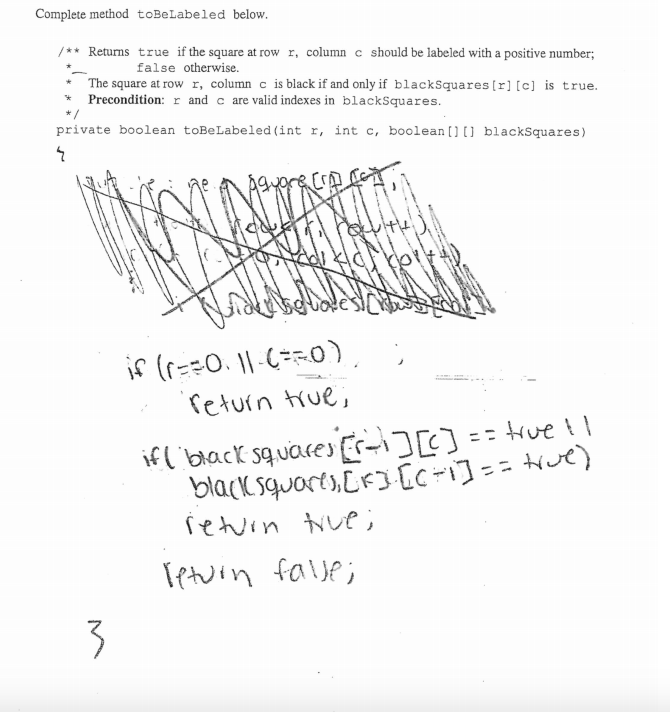 Complete method toBeLabeled below.
/** Returns true if the square at row r, column c should be labeled with a positive number;
* false otherwise.
* The square at row r, column c is black if and only if blackSquares[r][c] is true.
* Precondition: r and c are valid indexes in blackSquares.
*/
private boolean toBeLabeled(int r, int c, boolean[][] blackSquares)
{
if (r==0 || c==0) ;
return true;
if( blacksquares[r-1][c] == true ||
blacksquares[r][c-1] == true)
return true;
return false;
}